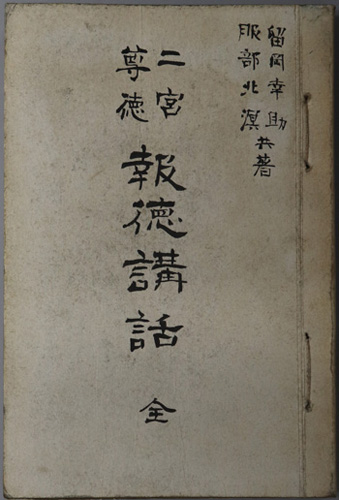 留岡幸助
服部北溟共著
二宮
尊徳
報徳講話 全